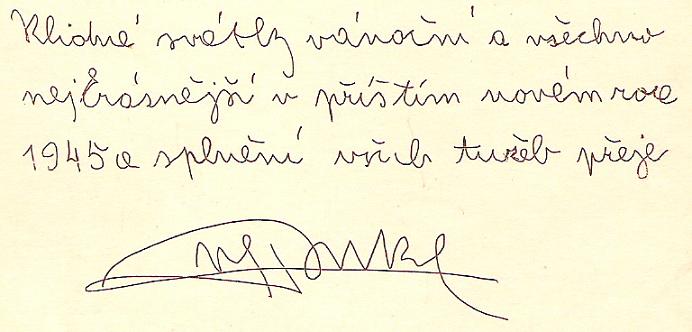 Klidné svátky vánoční a všechno
nejkrásnější v příštím novém roce
1945 a splnění všech tužeb přeje